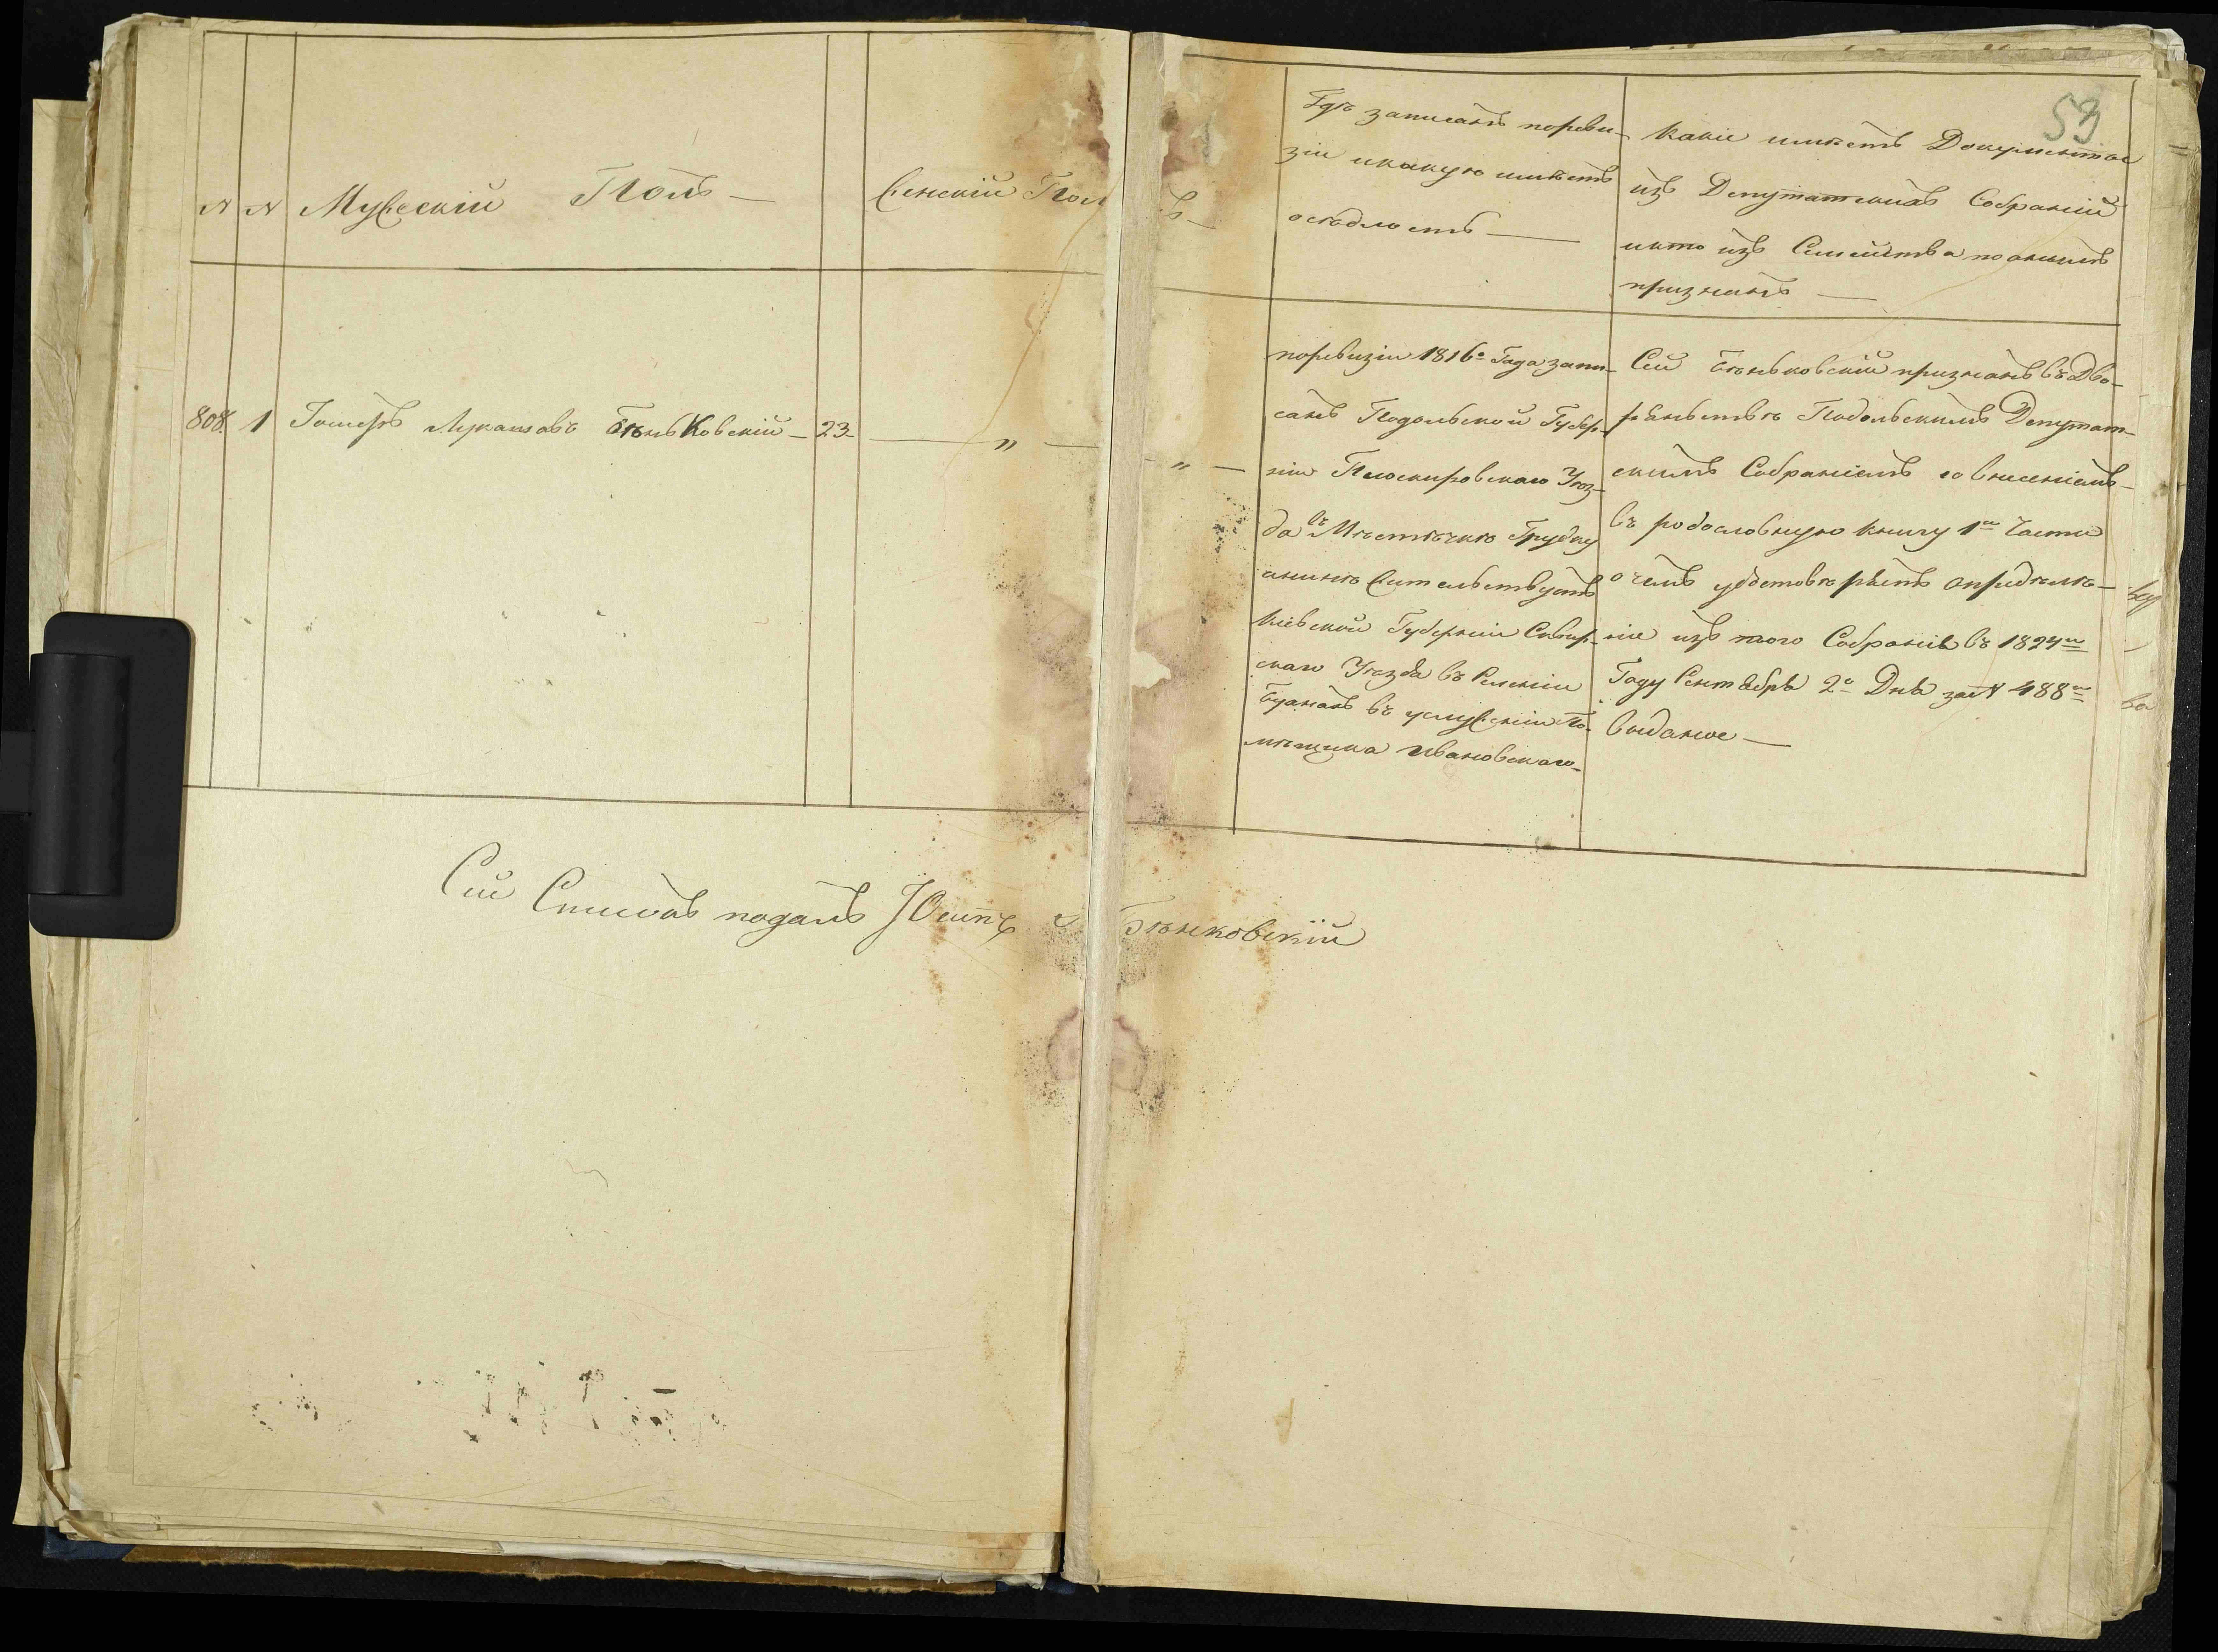 53
N N Мужескій Полъ —
Женскій Полъ —
Где записанъ по реви-
зіи и какую имѣетъ
осѣдлость —
Какіе имѣетъ Документы
изъ Депутатскихъ Собраній
и кто изъ Семейства по онымъ
признанъ —
808. 1 Іосифъ Лукашовъ Бѣньковскій — 23 — — " —
— " —
по ревизіи 1816го Года запи-
санъ Подольской Губер-
ніи Плоскировскаго Уѣз-
да въ Мѣстѣчкѣ
а нинѣ Жительствуетъ
Кіевской Губерніи Сквир-
скаго Уѣзда въ Селеніи
въ услуженіи По-
мѣщика Ивановскаго —
Сей Бѣньковскій признанъ въ Дво-
рянствѣ Подольскимъ Депутат-
скимъ Собраніемъ со внесеніемъ
въ родословную книгу 1й Части
о чемъ удостовѣряетъ опредѣлѣ-
ніе изъ того Собранія въ 1824м
Году Сентября 2го Дня за N 488м
выданое —
Сій Списокъ подалъ Юсипъ Бѣнковскій